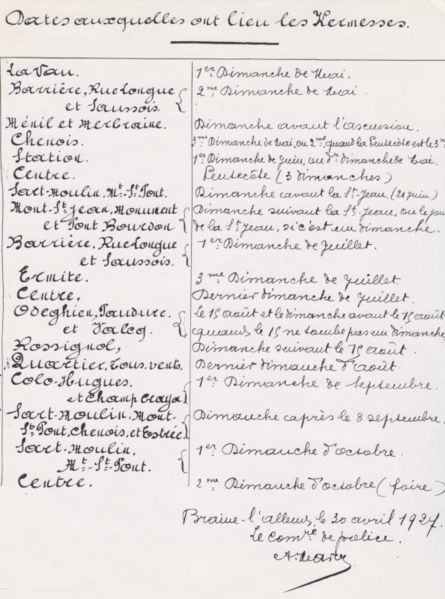 Dates auxquelles ont lieu les Kermesses.
La Vau. 1er Dimanche de Mai.
Barrière, Rue Longue 2me Dimanche de Mai.
et Saussois.
Ménil et Merbraine. Dimanche avant l'ascension.
Chenois. 3me Dimanche de Mai, ou 2me quand la Pentecôte est le 3me
Station. 1er Dimanche de Juin, ou dimanche de
Centre. Pentecôte (3 dimanches)
Sart-Moulin, Mt-St-Pont. Dimanche avant la St-Jean, (21 juin)
Mont-St-Jean, Monument Dimanche suivant la St-Jean, ou le jour
et Pont Bourdon de la St-Jean, si c'est un dimanche.
Barrière, Rue Longue 1er Dimanche de Juillet.
et Saussois.
Ermite. 3me Dimanche de Juillet.
Centre. Dernier dimanche de Juillet.
Odeghien, Paudure, le 15 août et le dimanche avant le 15 août
et Valcq. quand le 15 ne tombe pas un dimanche
Rossignol, Dimanche suivant le 15 août.
Quartier, Tous vents. Dernier dimanche d'août.
Colo-Hugues, 1er Dimanche de Septembre.
et Champ Craya
Sart-Moulin, Mont- Dimanche après le 8 septembre.
St-Pont, Chenois, et Estrée
Sart-Moulin. 1er Dimanche d'octobre.
Mt-St-Pont.
Centre. 2me Dimanche d'octobre (foire)
Braine-l'alleud, le 20 avril 1927.
Le comre de police.